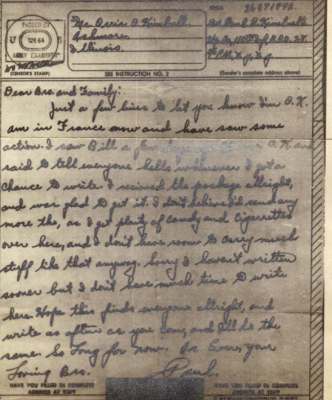 PASSED BY
ARMY EXAMINER
(CENSOR'S STAMP)
Ashmore,
Illinois.
SEE INSTRUCTION NO. 2
(Sender's complete address above)
Dear Bro and Family:
Just a few lines to let you know I'm O.K.
am in France now and have saw some
action. I saw Bill a few O.K. and
said to tell everyone hello whenever I got a
chance to write. I recieved the package allright,
and was glad to get it. I don't believe I'd send any
more tho, as I get plenty of candy and cigarettes
over here, and I don't have room to carry much
stuff like that anyway. Sorry I haven't written
sooner but I don't have much time to write
here. Hope this finds everyone allright, and
write as often as you can, and I'll do the
same. So long for now. As Ever, your
Loving Bro. Paul
HAVE YOU FILLED IN COMPLETE
ADDRESS AT TOP?
HAVE YOU FILLED IN COMPLETE
ADDRESS AT TOP?